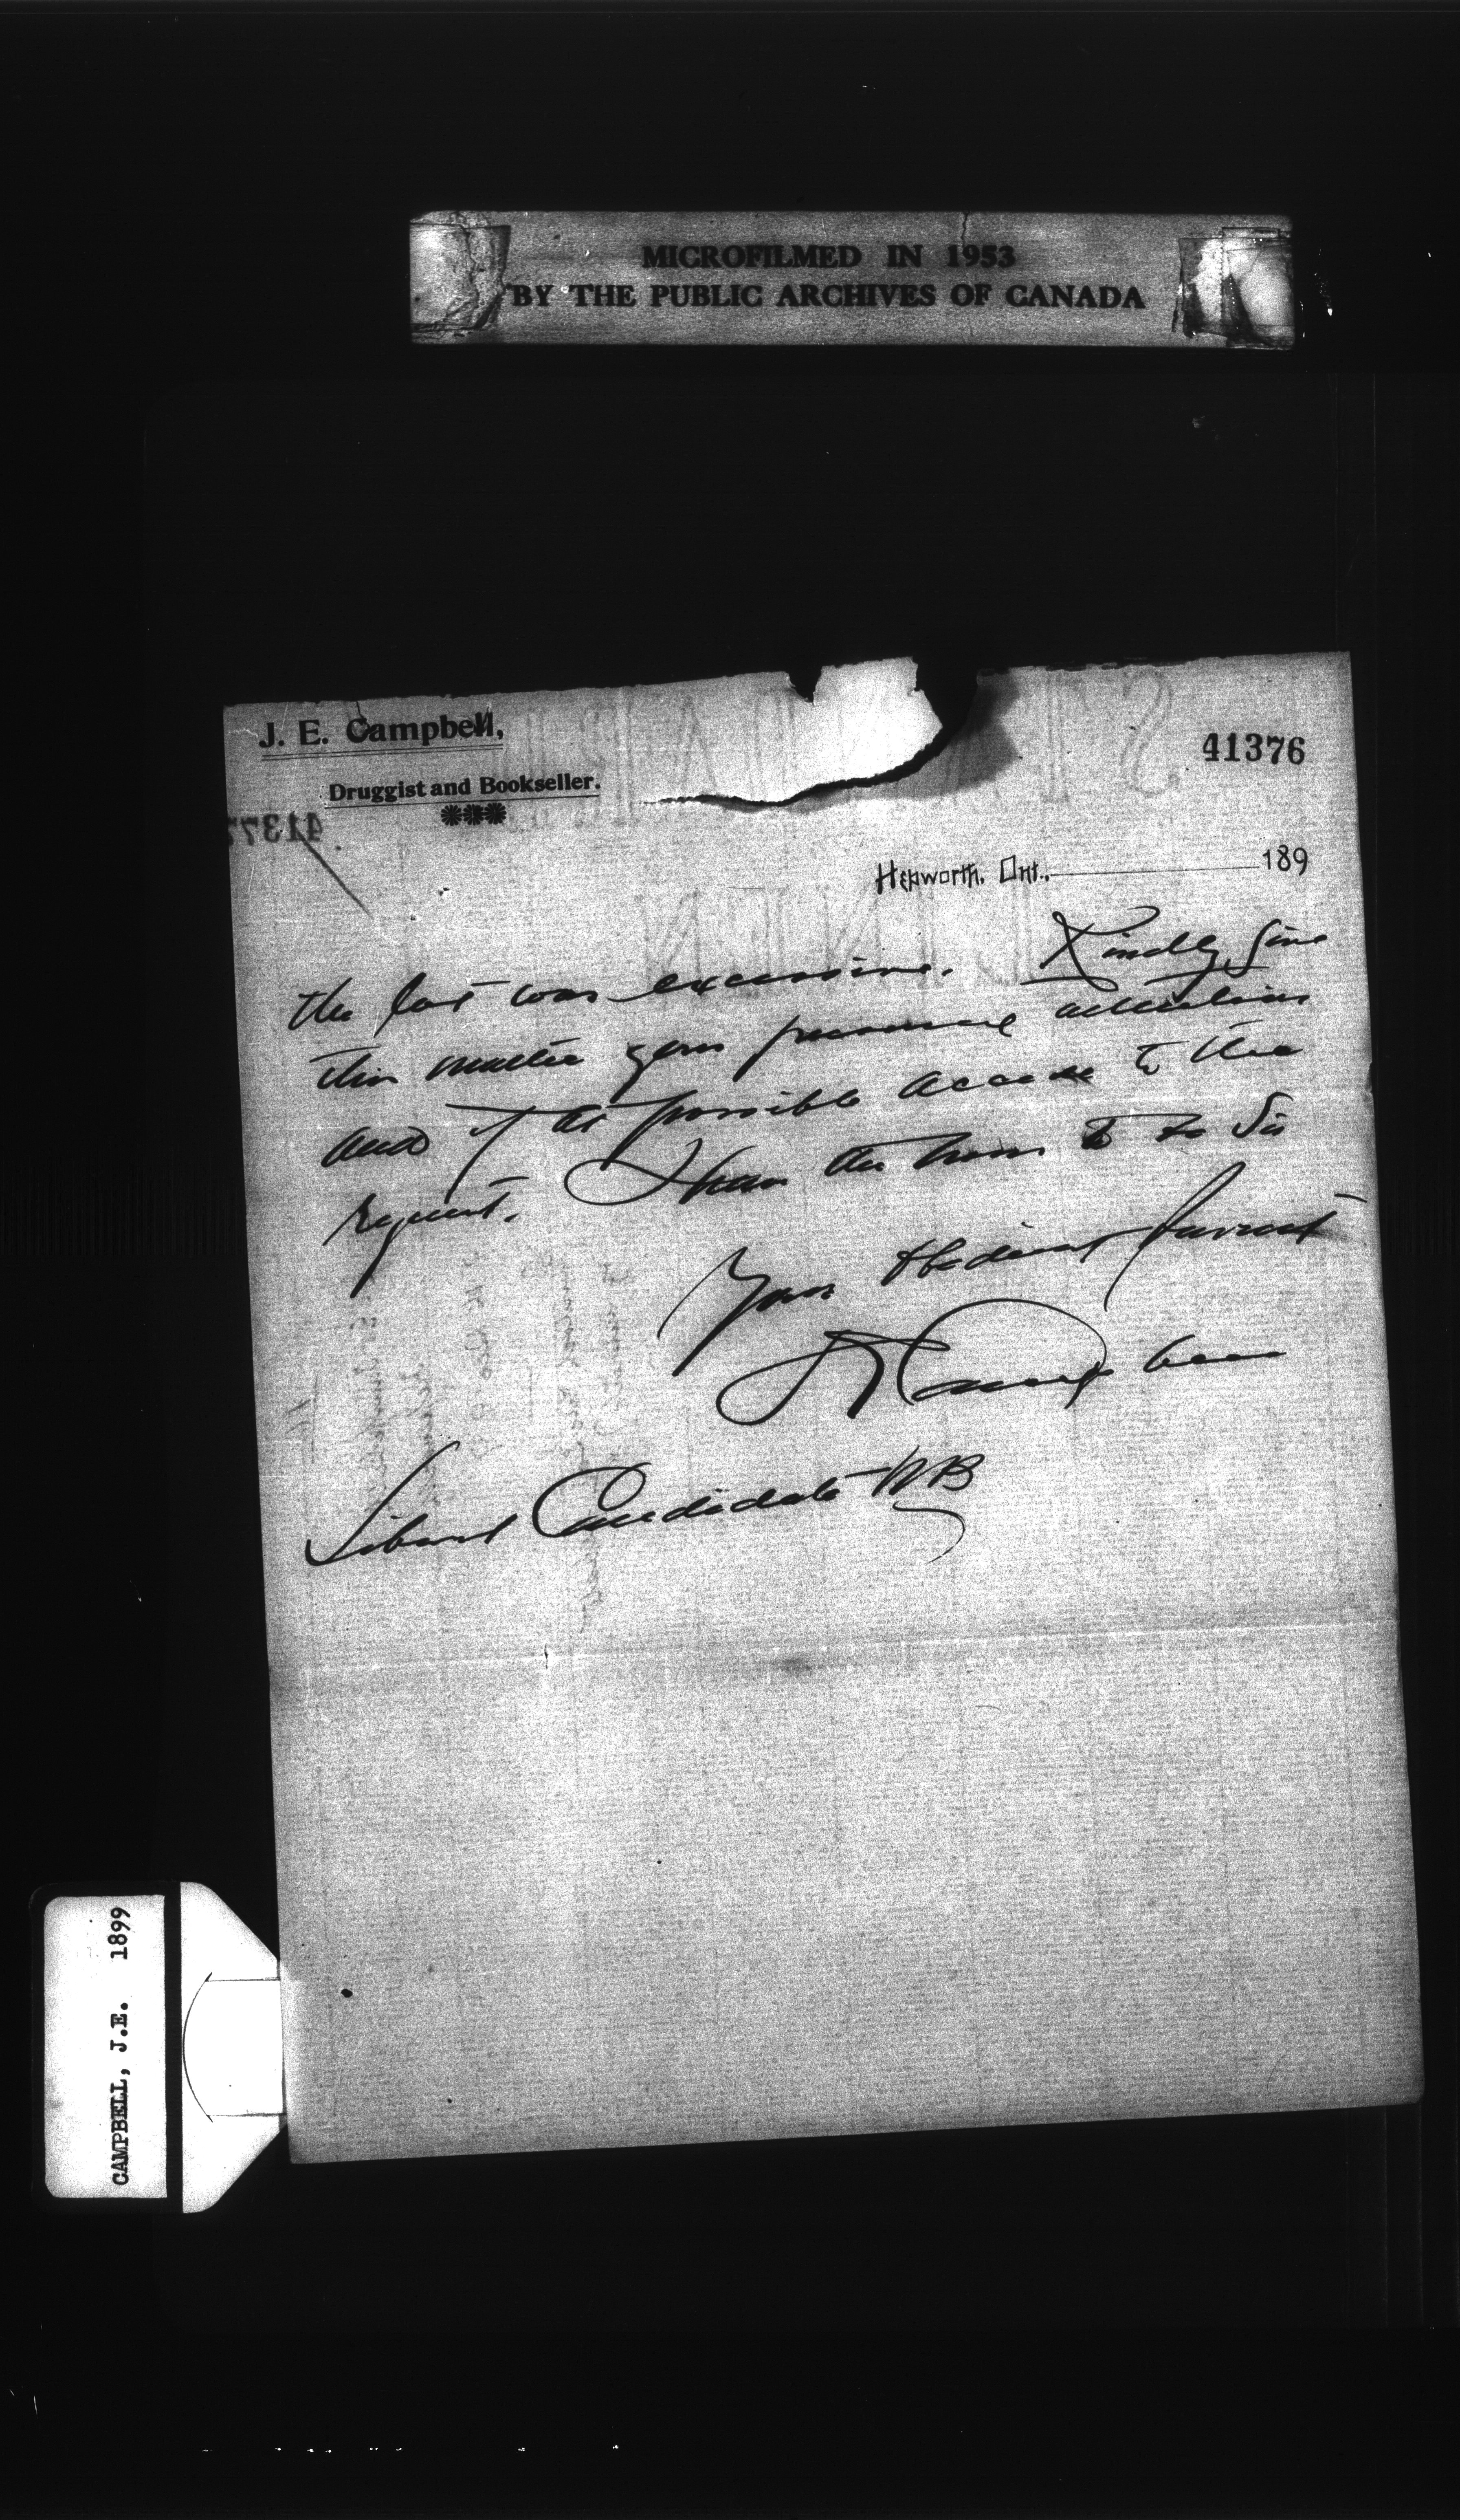 MICROFILMED IN 1953
BY THE PUBLIC ARCHIVES OF CANADA
J. E. Campbell,
Druggist and Bookseller.
41376
41377
Hepworth, Ont., 189
the last was excessive. Kindly give
this matter your personal attention
and if at possible accede to the
request. I have the honor to be Sir
Your Obedient Servant
J E Campbell
Liberal Candidate N B
CAMPBELL, J.E. 1899